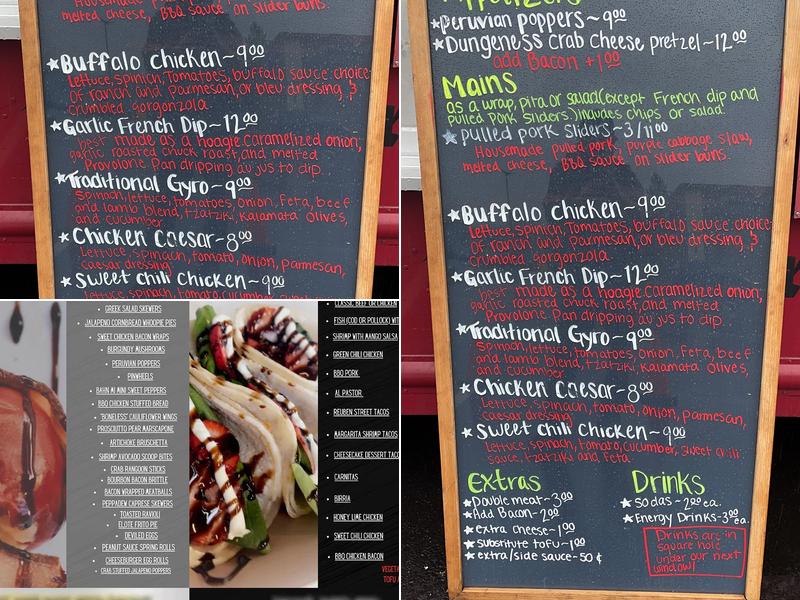 melted cheese, BBQ sauce on slider buns.
★Buffalo chicken~9⁰⁰
Lettuce, spinich, Tomatoes, buffalo sauce choice
of ranch and parmesan, or bleu dressing &
crumbled gorgonzola.
★Garlic French Dip~12⁰⁰
best made as a hoagie, caramelized onion,
garlic roasted chuck roast, and melted
Provolone. Pan dripping au jus to dip.
★Traditional Gyro~9⁰⁰
Spinach, lettuce, tomatoes, onion, feta, beef
and lamb blend, tzatziki, kalamata olives,
and cucumber
★Chicken Caesar~8⁰⁰
Lettuce, spinach, tomato, onion, parmesan,
caesar dressing
★Sweet chili Chicken~9⁰⁰
Lettuce, spinach, tomato, cucumber, sweet chili
Appetizers
★Peruvian poppers~9⁰⁰
★Dungeness crab cheese pretzel~12⁰⁰
add Bacon +1⁰⁰
Mains
as a wrap, pita or salad(except French dip and
pulled Pork sliders.)Includes chips or salad.
★pulled pork sliders~3/11⁰⁰
Housemade pulled pork, purple cabbage slaw,
melted cheese, BBQ sauce on slider buns.
★Buffalo chicken~9⁰⁰
Lettuce, spinich, Tomatoes, buffalo sauce choice
of ranch and parmesan, or bleu dressing &
crumbled gorgonzola.
★Garlic French Dip~12⁰⁰
best made as a hoagie, caramelized onion,
garlic roasted chuck roast, and melted
Provolone. Pan dripping au jus to dip.
★Traditional Gyro~9⁰⁰
Spinach, lettuce, tomatoes, onion, feta, beef
and lamb blend, tzatziki, kalamata olives,
and cucumber
★Chicken Caesar~8⁰⁰
Lettuce, spinach, tomato, onion, parmesan,
caesar dressing
★Sweet chili Chicken~9⁰⁰
Lettuce, spinach, tomato, cucumber, sweet chili
sauce, tzatziki and feta.
Extras
★Double meat-3⁰⁰
★Add Bacon-2⁰⁰
★extra cheese-1⁰⁰
★substitute tofu-1⁰⁰
★extra/side sauce-50¢
Drinks
★sodas-2⁰⁰ea.
★Energy Drinks-3⁰⁰ea.
Drinks are in
square hole
under our next
window!
• GREEK SALAD SKEWERS
• JALAPENO CORNBREAD WHOOPIE PIES
• SWEET CHICKEN BACON WRAPS
• BURGUNDY MUSHROOMS
• PERUVIAN POPPERS
• PINWHEELS
• BAHN AI MINI SWEET PEPPERS
• BBQ CHICKEN STUFFED BREAD
• "BONELESS" CAULIFLOWER WINGS
• PROSCIUTTO PEAR MARSCAPONE
• ARTICHOKE BRUSCHETTA
• SHRIMP AVOCADO SCOOP BITES
• CRAB RANGOON STICKS
• BOURBON BACON BRITTLE
• BACON WRAPPED MEATBALLS
• PEPPADEW CAPRESE SKEWERS
• TOASTED RAVIOLI
• ELOTE FRITO PIE
• DEVILED EGGS
• PEANUT SAUCE SPRING ROLLS
• CHEESEBURGER EGG ROLLS
• CRAB STUFFED JALAPENO POPPERS
• CLASSIC BEEF OR CHICKEN
• FISH (COD OR POLLOCK) WIT
• SHRIMP WITH MANGO SALSA
• GREEN CHILI CHICKEN
• BBQ PORK
• AL PASTOR
• REUBEN STREET TACOS
• MARGARITA SHRIMP TACOS
• CHEESECAKE DESSERT TACO
• CARNITAS
• BIRRIA
• HONEY LIME CHICKEN
• SWEET CHILI CHICKEN
• BBQ CHICKEN BACON
VEGETA
TOFU A